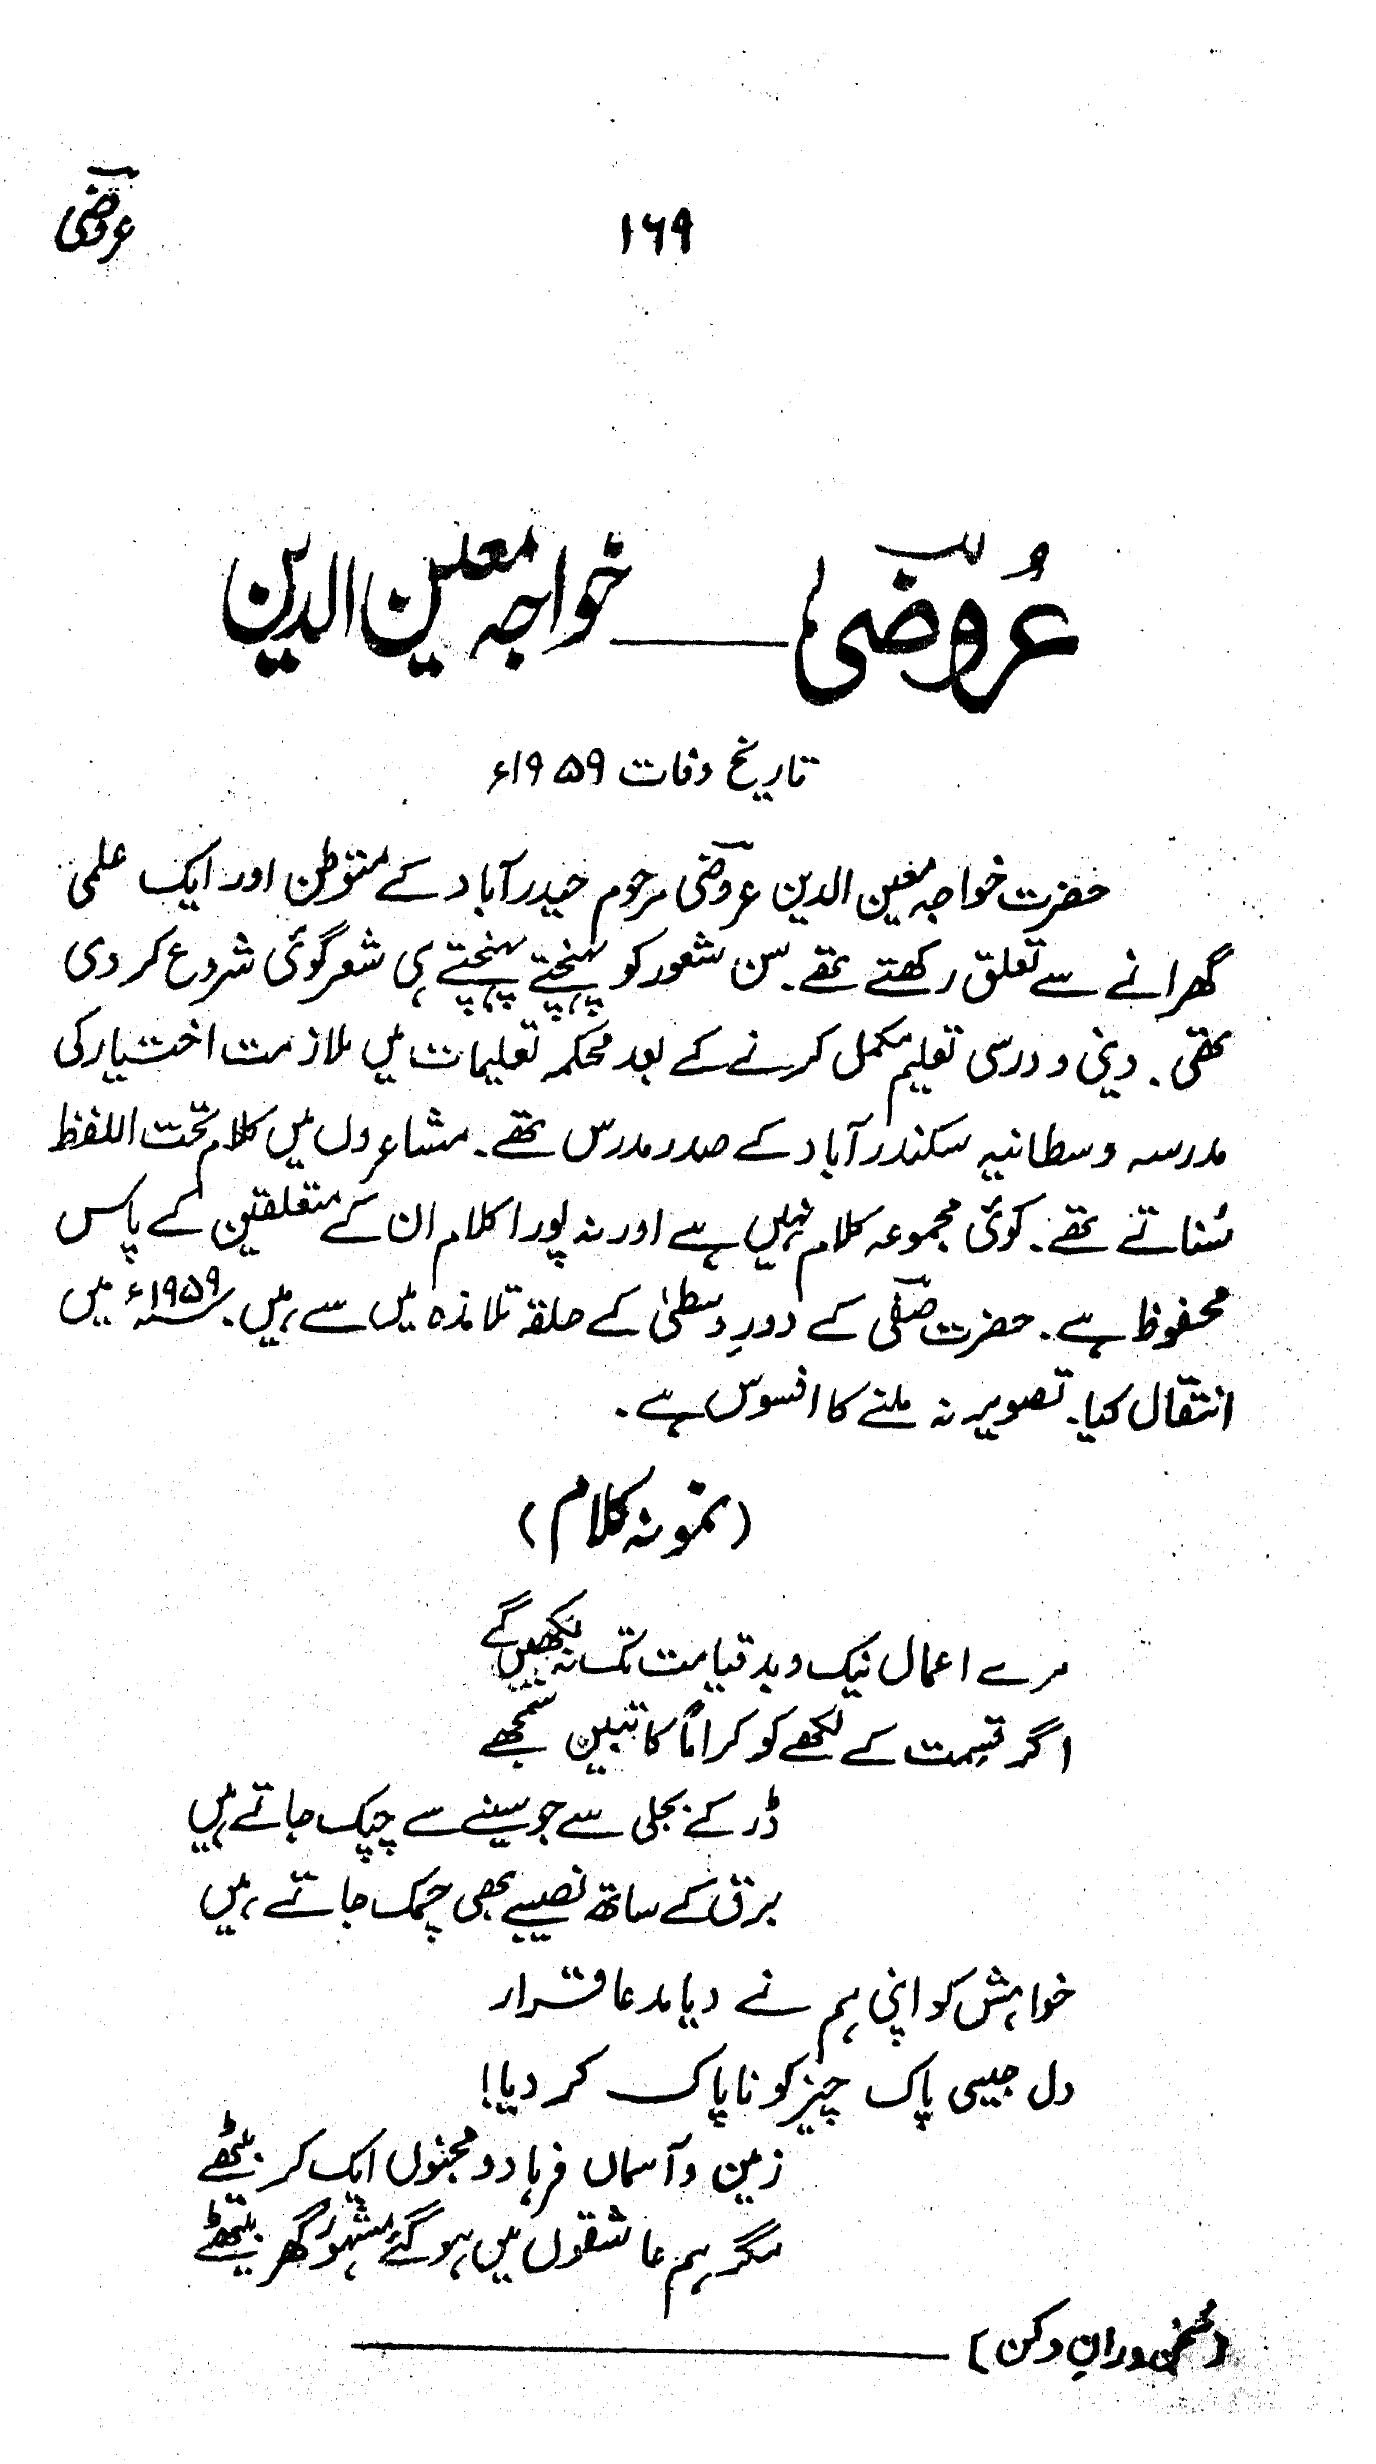 عروضی
۱۶۹
عُروضی ـــــ خواجہ معین الدین
تاریخ وفات ۱۹۵۹ء
حضرت خواجہ معین الدین عروضی مرحوم حیدرآباد کے متوطن اور ایک علمی
گھرانے سے تعلق رکھتے تھے۔ سن شعور کو پہنچتے پہنچتے ہی شعر گوئی شروع کر دی
تھی۔ دینی و درسی تعلیم مکمل کرنے کے بعد محکمہ تعلیمات میں ملازمت اختیار کی
مدرسہ وسطانیہ سکندرآباد کے صدر مدرس تھے۔ مشاعروں میں کلام تحت اللفظ
سُناتے تھے۔ کوئی مجموعہ کلام نہیں ہے اور نہ پورا کلام ان کے متعلقین کے پاس
محفوظ ہے۔ حضرت صفی کے دورِ وسطیٰ کے حلقہ تلامذہ میں سے ہیں۔ ۱۹۵۹ء میں
انتقال کیا۔ تصویر نہ ملنے کا افسوس ہے۔
(نمونہ کلام)
مرے اعمال نیک و بد قیامت تک نہ لکھیں گے
اگر قسمت کے لکھے کو کراماً کاتبین سمجھے
ڈر کے بجلی سے جو سینے سے چپک جاتے ہیں
برق کے ساتھ نصیبے بھی چمک جاتے ہیں
خواہش کو اپنی ہم نے دیا مدعا قرار
دل جیسی پاک چیز کو ناپاک کر دیا!
زمین و آسماں فرہاد و مجنوں ایک کر بیٹھے
مگر ہم عاشقوں میں ہو گئے مشہور گھر بیٹھے
(سُخن ورانِ دکن)